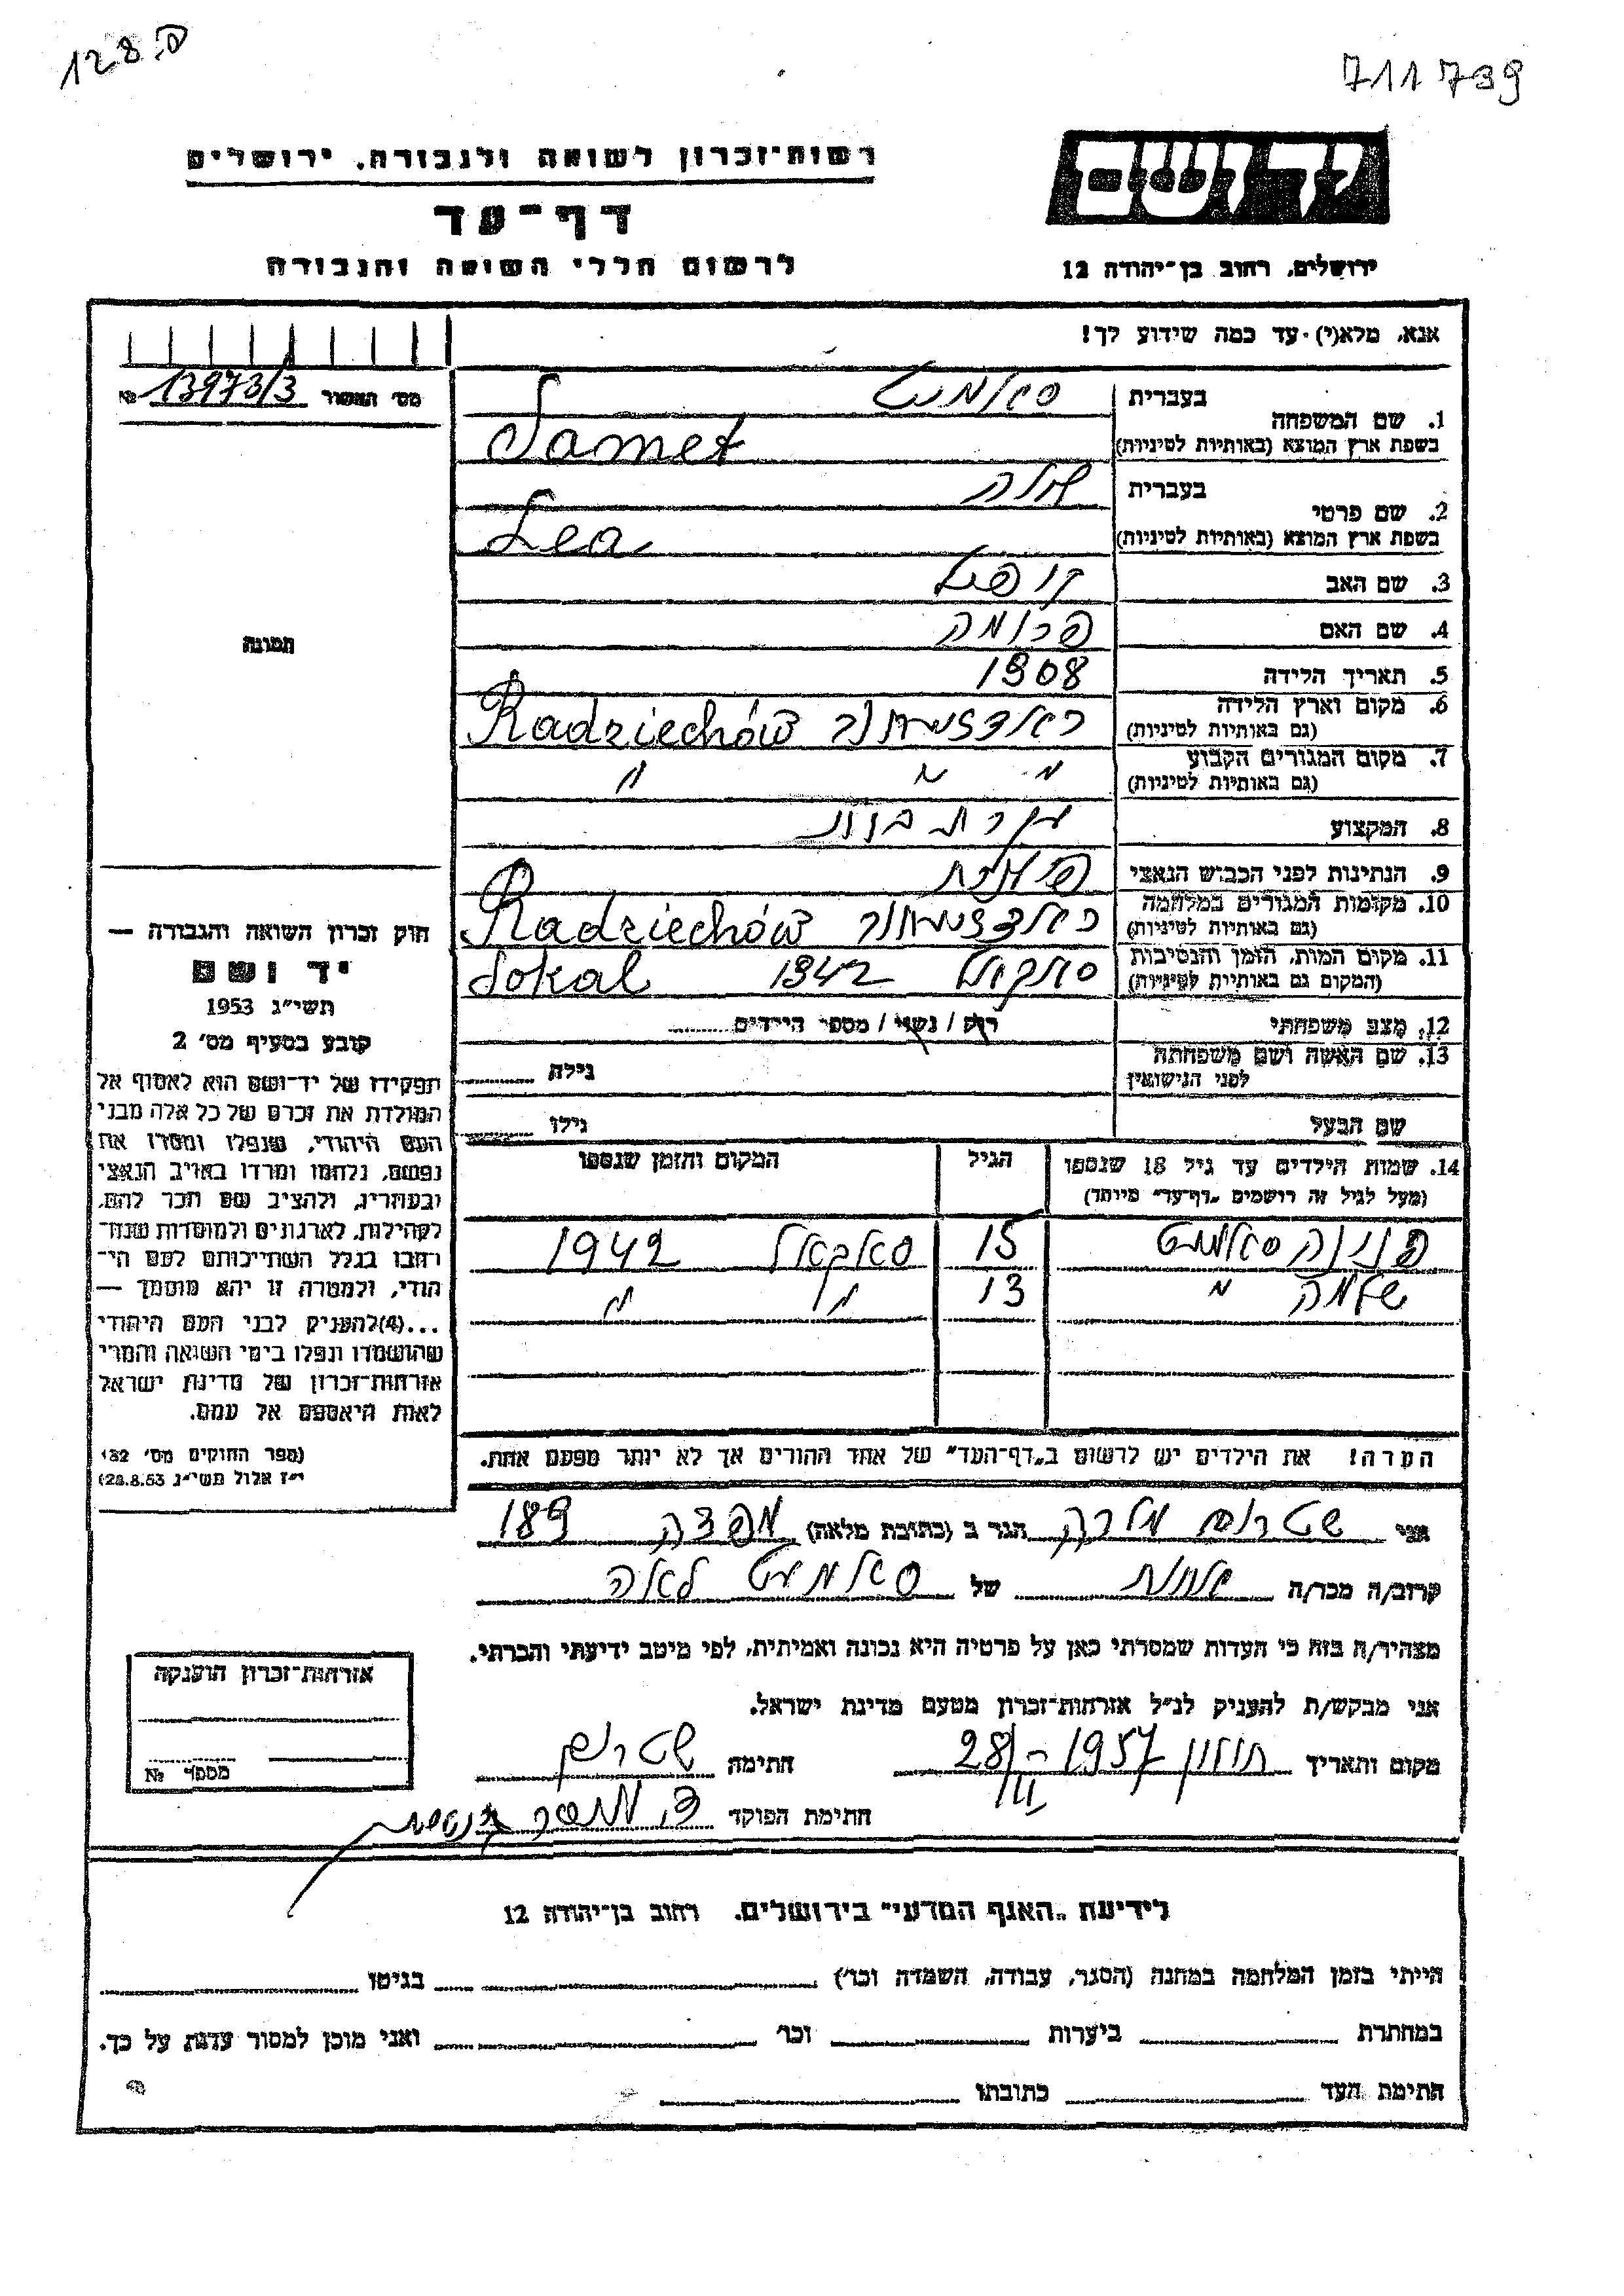 128.ס
711739
יד ושם
רשות-זכרון לשואה ולגבורה, ירושלים
דף-עד
לרשום חללי השואה והגבורה
ירושלים, רחוב בן-יהודה 12
אנא, מלא(י) עד כמה שידוע לך!
מס' האשור 13973/3 №
1. שם המשפחה
בעברית סאמט
בשפת ארץ המוצא (באותיות לטיניות) Samet
2. שם פרטי
בעברית לאה
בשפת ארץ המוצא (באותיות לטיניות) Lea
3. שם האב
4. שם האם פרומה
5. תאריך הלידה 1908
6. מקום וארץ הלידה
(גם באותיות לטיניות) Radziechów
7. מקום המגורים הקבוע
(גם באותיות לטיניות) " " "
8. המקצוע עקרת בית
9. הנתינות לפני הכבוש הנאצי פולנית
10. מקומות המגורים במלחמה
(גם באותיות לטיניות) Radziechów
11. מקום המות, הזמן והנסיבות
(המקום גם באותיות לטיניות) סוקול 1942 Sokal
12. מצב משפחתי רוק / נשוי / מספר הילדים
13. שם האשה ושם משפחתה
לפני הנישואין גילה
שם הבעל גילו
תמונה
חוק זכרון השואה והגבורה —
יד ושם
תשי"ג 1953
קובע בסעיף מס' 2
תפקידו של יד-ושם הוא לאסוף אל
המולדת את זכרם של כל אלה מבני
העם היהודי, שנפלו ומסרו את
נפשם, נלחמו ומרדו באויב הנאצי
ובעוזריו, ולהציב שם וזכר להם,
לקהילות, לארגונים ולמוסדות שנח-
רבו בגלל השתייכותם לעם הי-
הודי, ולמטרה זו יהא מוסמך —
...(4) להעניק לבני העם היהודי
שהושמדו ונפלו בימי השואה והמרי
אזרחות-זכרון של מדינת ישראל
לאות היאספם אל עמם.
(ספר החוקים מס' 132
י"ז אלול תשי"ג 28.8.53)
14. שמות הילדים עד גיל 18 שנספו
(מעל לגיל זה רושמים "דף-עד" מיוחד)
הגיל
המקום והזמן שנספו
פנינה סאמט 15 סאקאל 1942
שלמה " 13 " "
הערה! את הילדים יש לרשום ב"דף-העד" של אחד ההורים אך לא יותר מפעם אחת.
אני שטרום מלכה הגר ב (כתובת מלאה) 189
קרוב/ה מכר/ה אחות של סאמט לאה
מצהיר/ה בזה כי העדות שמסרתי כאן על פרטיה היא נכונה ואמיתית, לפי מיטב ידיעתי והכרתי.
אני מבקש/ת להעניק לנ"ל אזרחות-זכרון מטעם מדינת ישראל.
מקום ותאריך חולון 28/III-1957 חתימה שטרום
חתימת הפוקד
אזרחות-זכרון הוענקה
מספר №
לידיעת "האגף המדעי" בירושלים. רחוב בן-יהודה 12
הייתי בזמן המלחמה במחנה (הסגר, עבודה, השמדה וכו') בגיטו
במחתרת ביערות וכו' ואני מוכן למסור עדות על כך.
חתימת העד כתובתו